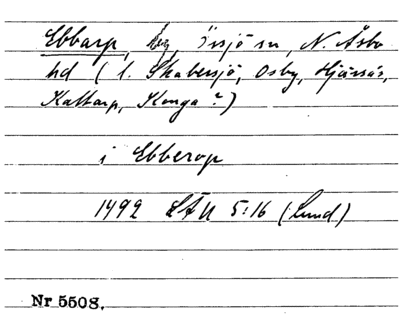 Ebbarp, Össjö sn, N. Åsbo
hd (l. Skabersjö, Osby, Hjärsås,
Kattarp, Konga?)
i Ebberop
1492 LÄU 5:16 (Lund)
Nr 5508.